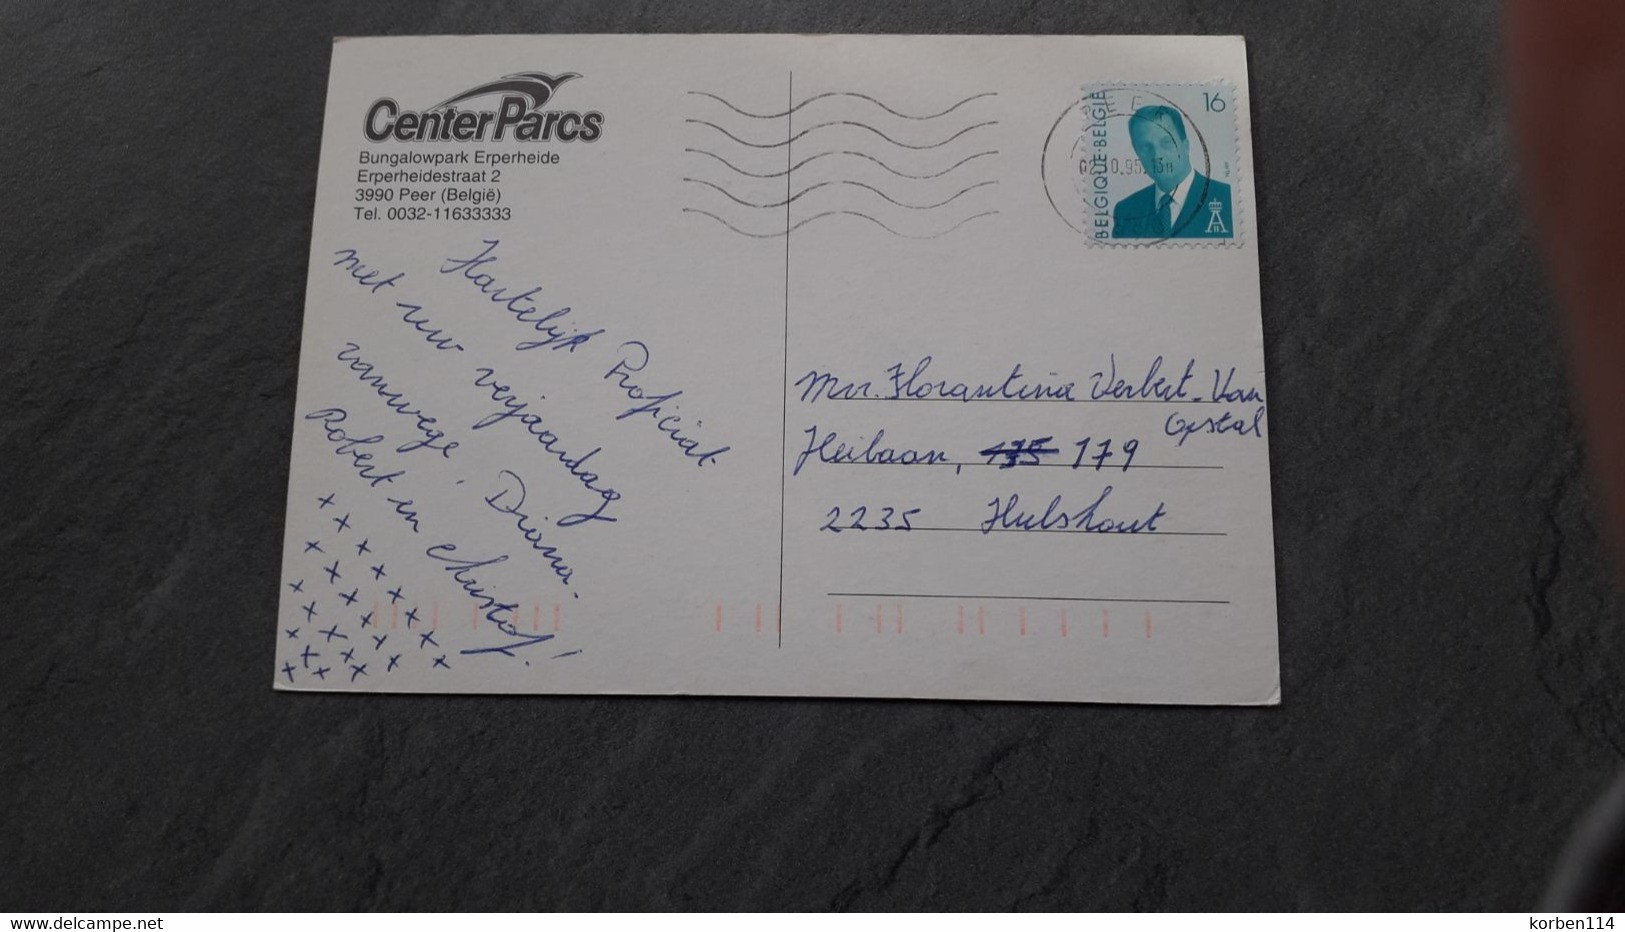 Center Parcs
Bungalowpark Erperheide
Erperheidestraat 2
3990 Peer (België)
Tel. 0032-11633333
BELGIQUE·BELGIE
16
Hartelijk Proficiat
met uw verjaardag
vanwege, Diana.
Robert en Christof!
x x x x x x x x
x x x x x x
x x x x x
x x x
x x
Mvr. Florantina Verbert-Van
Opstal
Heibaan, 179
2235 Hulshout
www.delcampe.net
korben114